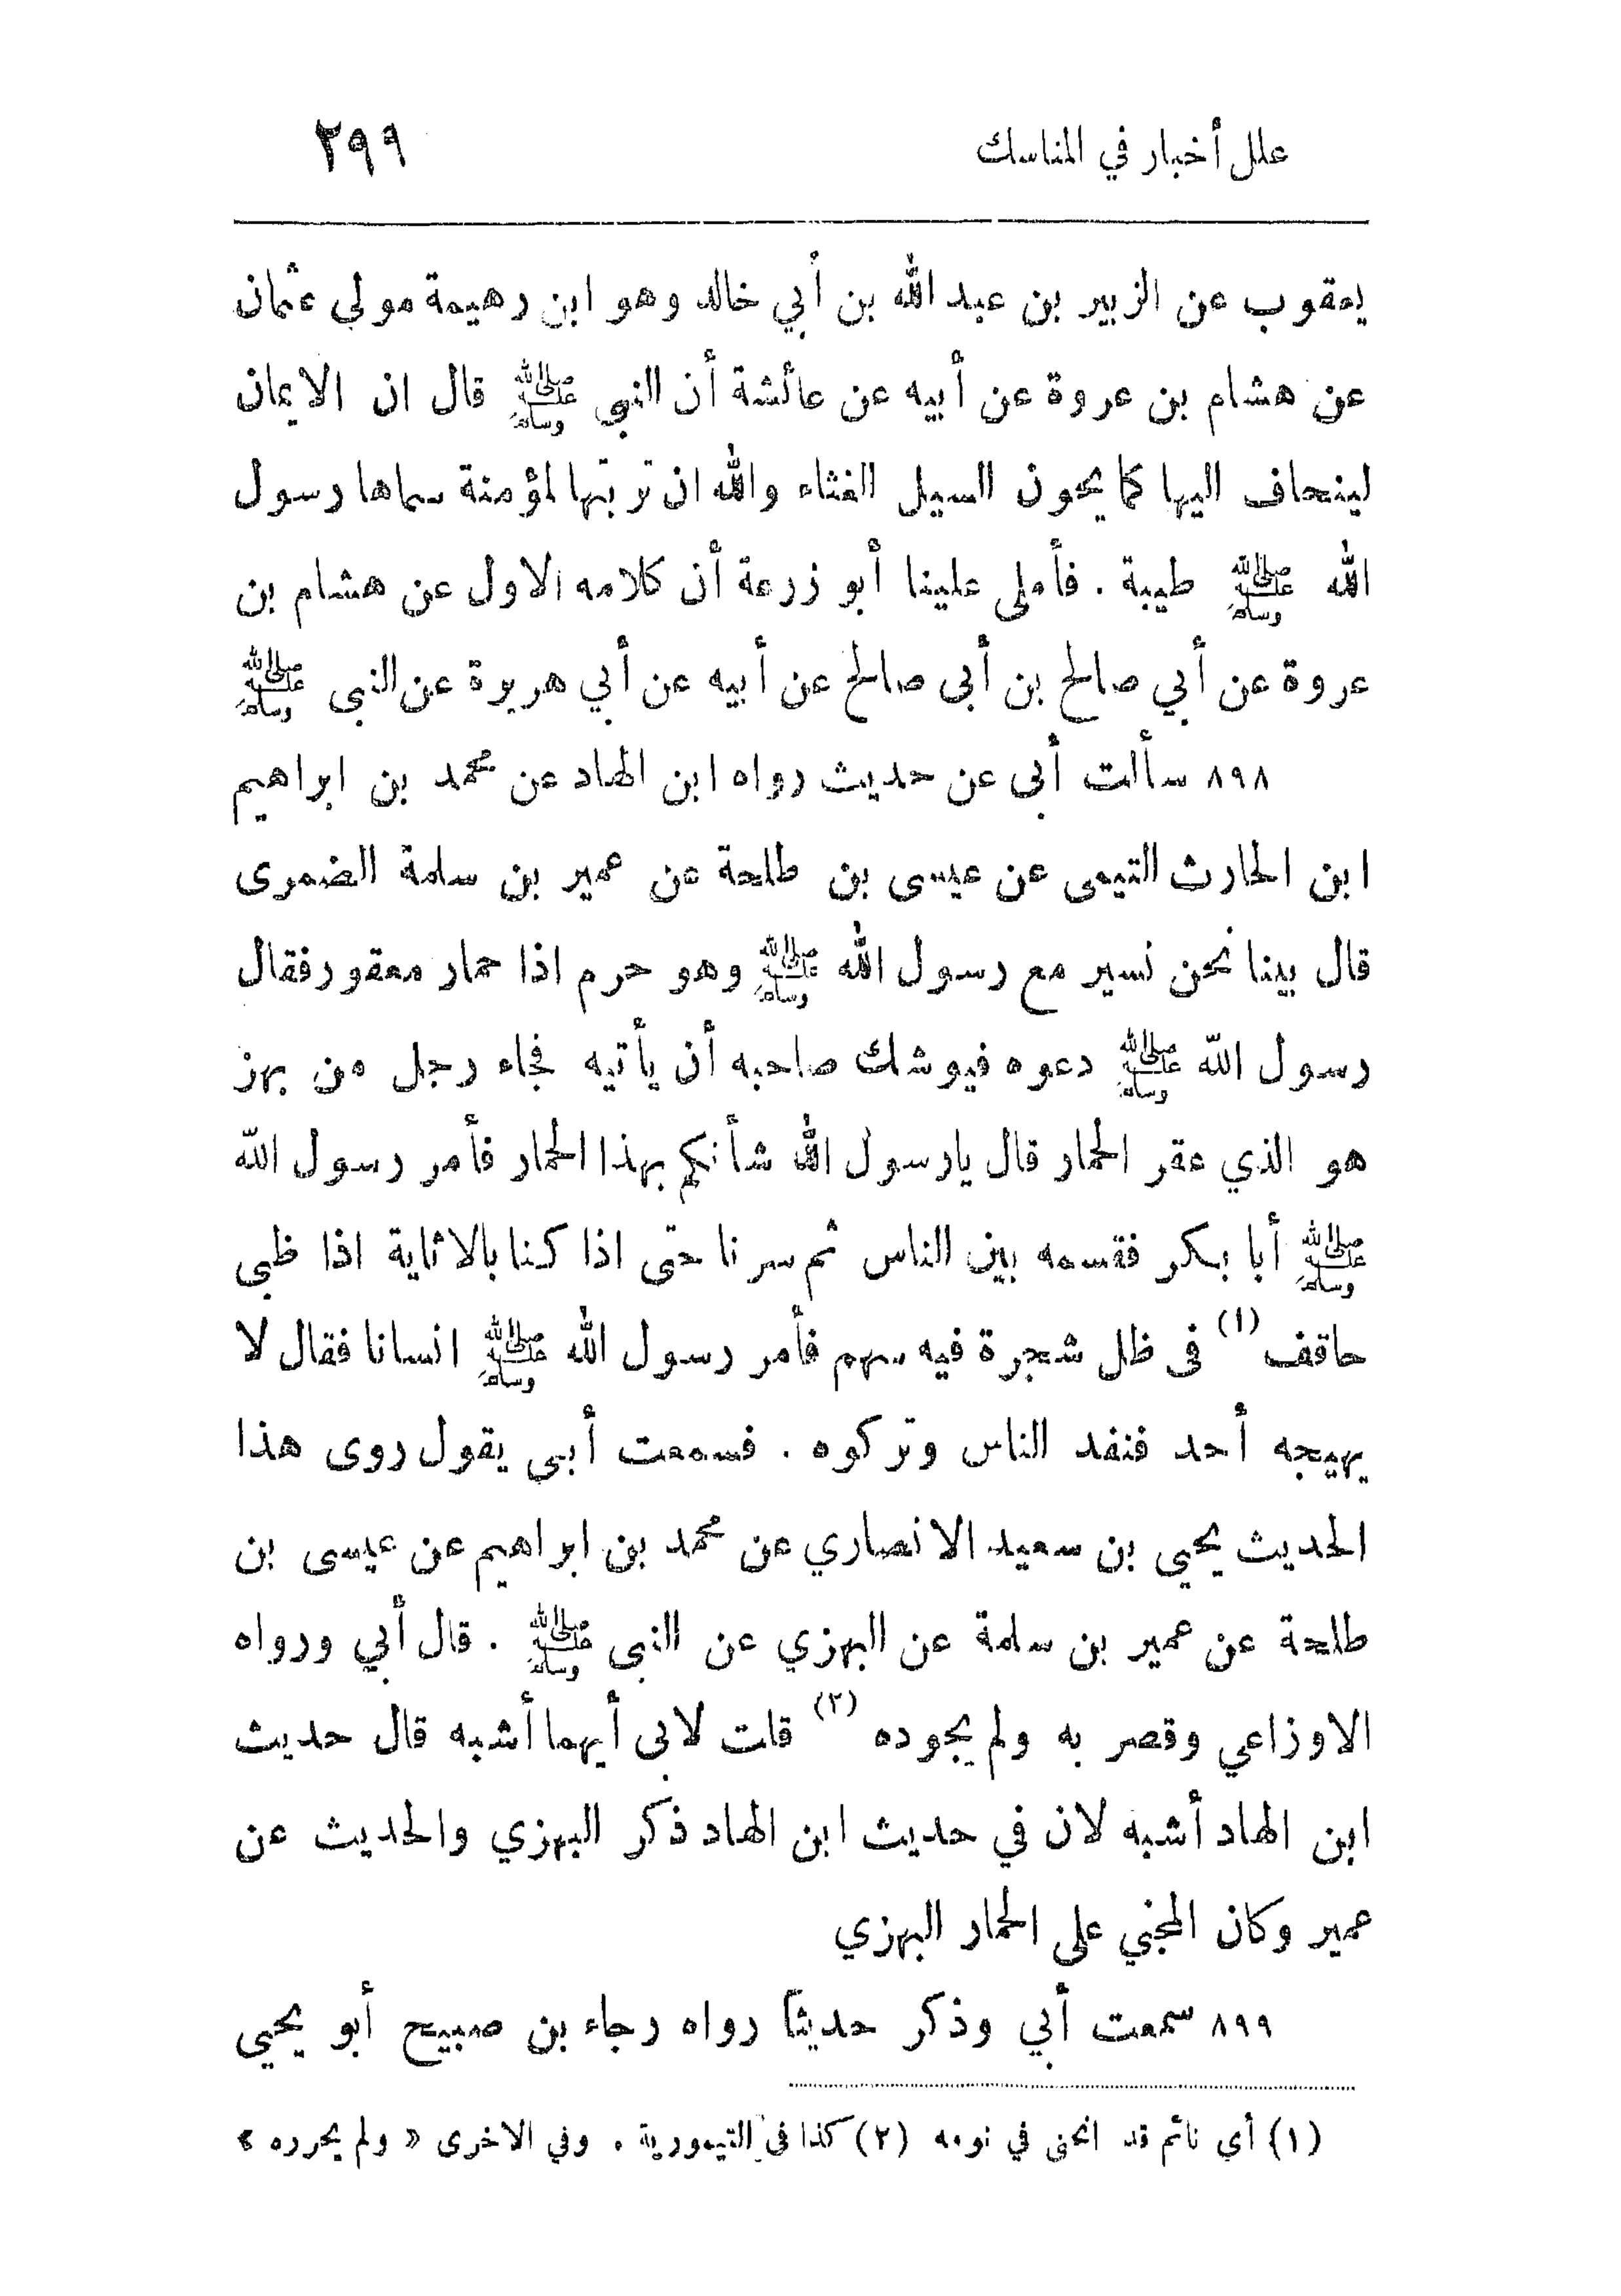 علل أخبار في المناسك ٢٩٩
يعقوب عن الزبير بن عبد الله بن أبي خالد وهو ابن رهيمة مولى عثمان
عن هشام بن عروة عن أبيه عن عائشة أن النبي ﷺ قال ان الايمان
لينحاف اليها كما يحون السيل الغثاء والله ان تربتها لمؤمنة سماها رسول
الله ﷺ طيبة . فأملى علينا أبو زرعة أن كلامه الاول عن هشام بن
عروة عن أبي صالح بن أبى صالح عن أبيه عن أبي هريرة عن النبى ﷺ
٨٩٨ سألت أبى عن حديث رواه ابن الهاد عن محمد بن ابراهيم
ابن الحارث التيمى عن عيسى بن طلحة عن عمير بن سلمة الضمرى
قال بينا نحن نسير مع رسول الله ﷺ وهو حرم اذا حمار معقور فقال
رسول الله ﷺ دعوه فيوشك صاحبه أن يأتيه فجاء رجل من بهز
هو الذي عقر الحمار قال يارسول الله شأنكم بهذا الحمار فأمر رسول الله
ﷺ أبا بكر فقسمه بين الناس ثم سرنا حتى اذا كنا بالاثاية اذا ظبي
حاقف (١) فى ظل شجرة فيه سهم فأمر رسول الله ﷺ انسانا فقال لا
يهيجه أحد فنفد الناس وتركوه . فسمعت أبي يقول روى هذا
الحديث يحيى بن سعيد الانصاري عن محمد بن ابراهيم عن عيسى بن
طلحة عن عمير بن سلمة عن البهزي عن النبى ﷺ . قال أبي ورواه
الاوزاعي وقصر به ولم يجوده (٢) قلت لابى أيهما أشبه قال حديث
ابن الهاد أشبه لان في حديث ابن الهاد ذكر البهزي والحديث عن
عمير وكان المجني على الحمار البهزي
٨٩٩ سمعت أبي وذكر حديثاً رواه رجاء بن صبيح أبو يحيى
(١) أي نائم قد انحنى في نومه (٢) كذا في التيمورية . وفي الاخرى « ولم يحرره »